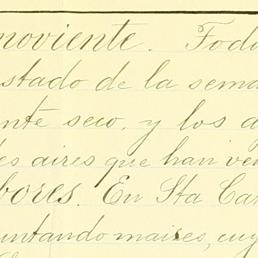 moviente. Todo
stado de la sema
nte seco, y los a
es aires que han ve
bores. En Sta Ca
untando maises, cuy